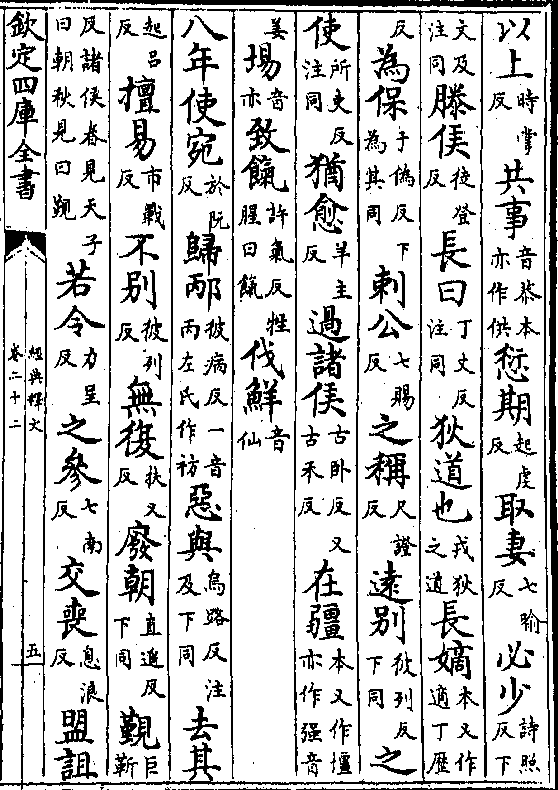 以上時掌反共事音恭本亦作供愆期起虔反取妻七喻反必少詩照反下
文及注同滕侯徒登反長曰丁丈反注同狄道也戎狄之道長嫡本又作適丁歷
反為保于偽反下為其同刺公七賜反之稱尺證反遠別彼列反下同之
使所吏反注同猶愈羊主反過諸侯古卧反又古禾反在疆本又作壃亦作强音
姜場音亦致餼許氣反牲腥曰餼伐鮮音仙
八年使宛於阮反歸邴彼病反一音丙左氏作祊惡與烏路反注及下同去其
起吕反擅易市戰反不別彼列反無復扶又反廢朝直遥反下同覲巨靳
反諸侯春見天子曰朝秋見曰覲若令力呈反之參七南反交喪息浪反盟詛
欽定四庫全書
經典釋文
卷二十二
五